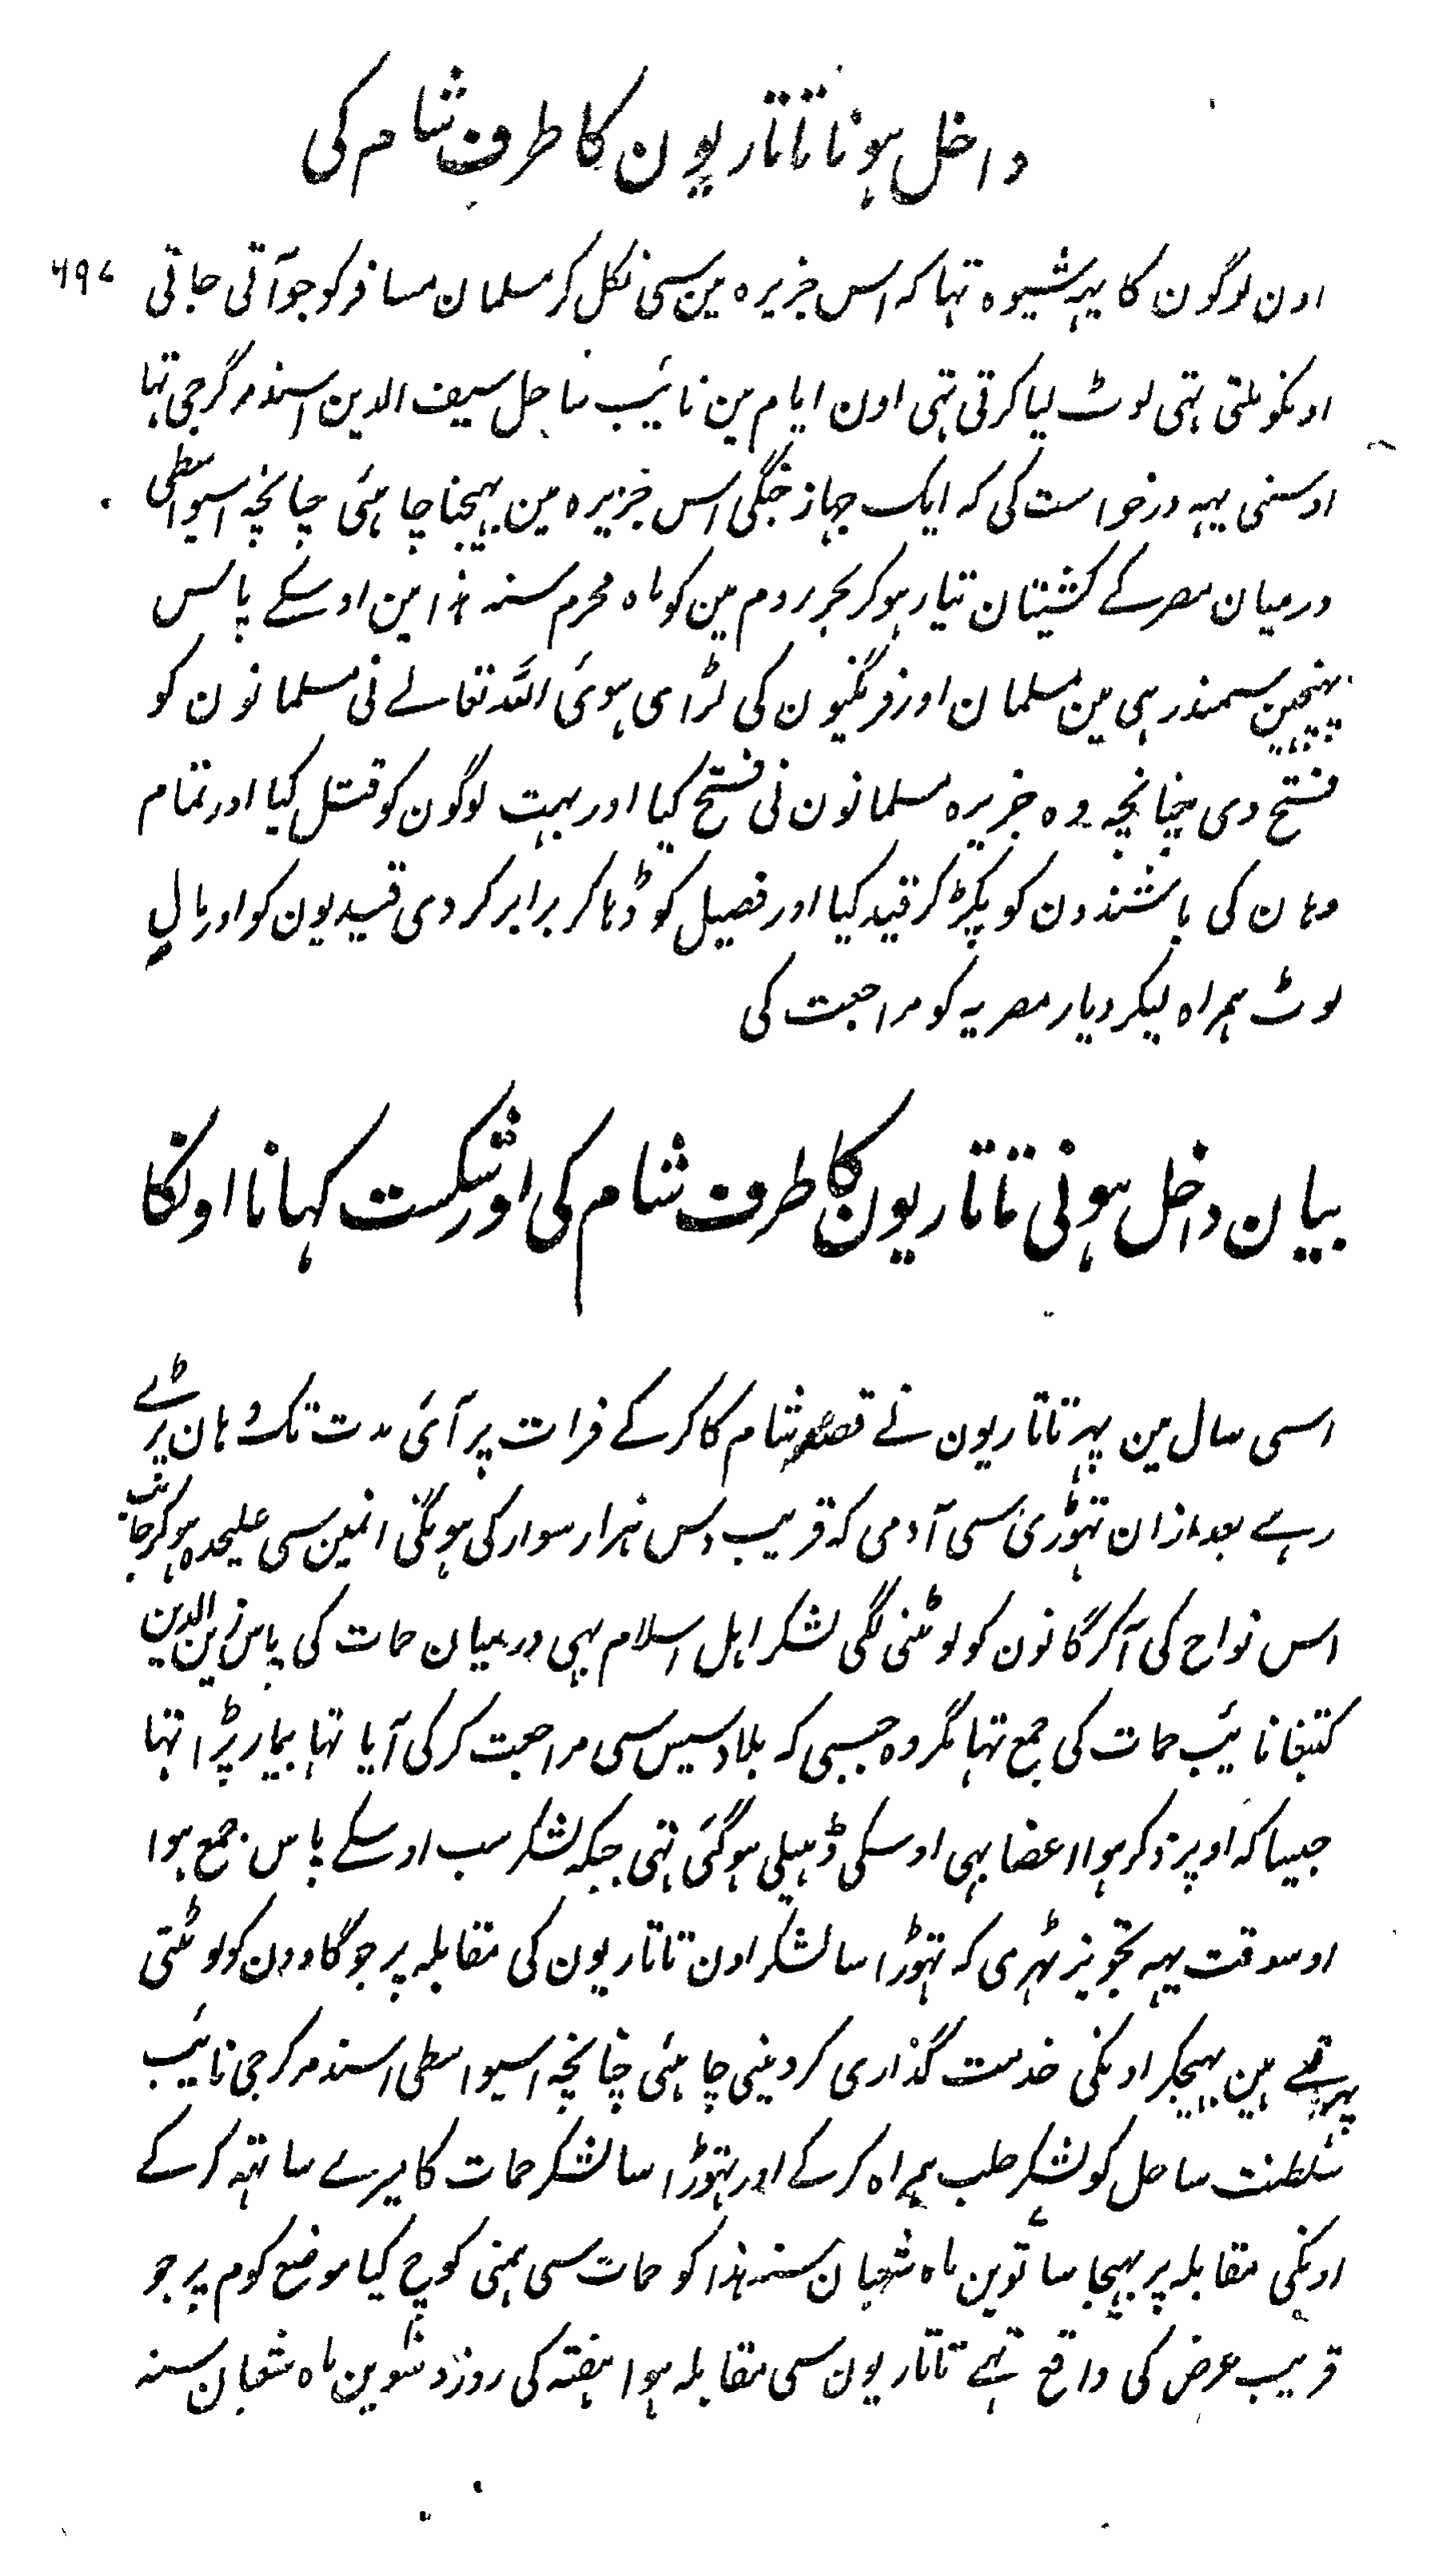 داخل ہونا تاتاریون کا طرف شام کی
اون لوگون کا یہہ شیوہ تہا کہ اس جزیرہ مین سی نکل کر مسلمان مسافر کو جو آتی جاتی
اونکو ملتی تہی لوٹ لیا کرتی تہی اون ایام مین نائیب ساحل سیف الدین اسندمر گرجی تہا
اوسنی یہہ درخواست کی کہ ایک جہاز جنگی اس جزیرہ مین بہیجنا چاہئی چنانچہ اسیواسطی
درمیان مصر کے کشتیان تیار ہو کر بحر روم مین کو ماہ محرم سنہ ہذا مین اوسکے پاس
پہنچین سمندر ہی مین مسلمان اور فرنگیون کی لڑای ہوئی اللہ تعالے نی مسلمانون کو
فتح دی چنانچہ وہ جزیرہ مسلمانون نی فتح کیا اور بہت لوگون کو قتل کیا اور تمام
وہان کی باشندون کو پکڑ کر قید کیا اور فصیل کو ڈہا کر برابر کر دی قیدیون کو اور مال
لوٹ ہمراہ لیکر دیار مصریہ کو مراجعت کی
بیان داخل ہونی تاتاریون کا طرف شام کی اور شکست کہانا اونکا
اسی سال مین پہر تاتاریون نے قصد شام کا کر کے فرات پر آئی مدت تک وہان پڑے
رہے بعد ازان تہوڑی سی آدمی کہ قریب دس ہزار سوار کی ہونگی انمین سی علیحدہ ہو کر جانب
اس نواح کی آ کر گانون کو لوٹنی لگی لشکر اہل اسلام بہی درمیان حمات کی پاس زین الدین
کتبغا نائیب حمات کی جمع تہا مگر وہ جبسی کہ بلاد سیس سی مراجعت کر کی آیا تہا بیمار پڑا تہا
جیسا کہ اوپر ذکر ہوا اعضا بہی اوسکی ڈہیلی ہو گئی تہی جبکہ لشکر سب اوسکے پاس جمع ہوا
اوسوقت یہہ تجویز ٹہری کہ تہوڑا سا لشکر اون تاتاریون کی مقابلہ پر جو گاوون کو لوٹتی
پہرتے ہین بہیجکر اونکی خدمت گذاری کر دینی چاہئی چنانچہ اسیواسطی اسندمر کرجی نائیب
سلطنت ساحل کو لشکر حلب ہمراہ کر کے اور تہوڑا سا لشکر حمات کا میرے ساتہہ کر کے
اونکی مقابلہ پر بہیجا ساتوین ماہ شعبان سنہ ہذا کو حمات سی ہمنی کوچ کیا موضع کوم پر جو
قریب عرض کی واقع ہے تاتاریون سی مقابلہ ہوا ہفتہ کی روز دسوین ماہ شعبان سنہ